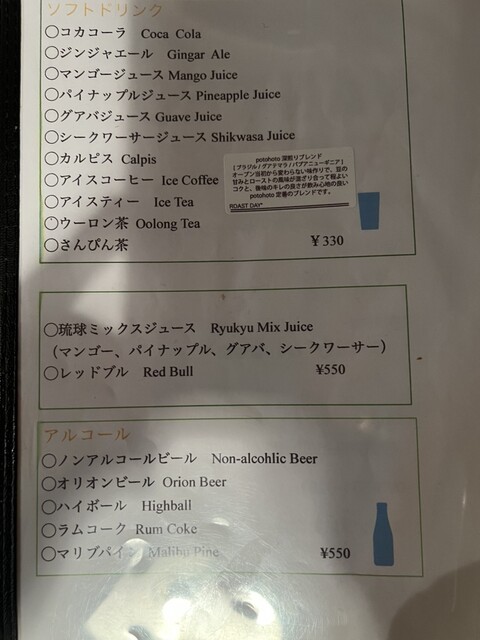 ソフトドリンク
○コカコーラ Coca Cola
○ジンジャエール Gingar Ale
○マンゴージュース Mango Juice
○パイナップルジュース Pineapple Juice
○グアバジュース Guave Juice
○シークワーサージュース Shikwasa Juice
○カルピス Calpis
○アイスコーヒー Ice Coffee
potohoto 深煎リブレンド
[ ブラジル / グアテマラ / パプアニューギニア ]
オープン当初から変わらない味作りで、豆の
甘みとローストの風味が混ざり合って程よい
コクと、後味のキレの良さが飲み心地の良い
potohoto 定番のブレンドです。
ROAST DAY*
○アイスティー Ice Tea
○ウーロン茶 Oolong Tea
○さんぴん茶 ¥330
○琉球ミックスジュース Ryukyu Mix Juice
（マンゴー、パイナップル、グアバ、シークワーサー）
○レッドブル Red Bull ¥550
アルコール
○ノンアルコールビール Non-alcohlic Beer
○オリオンビール Orion Beer
○ハイボール Highball
○ラムコーク Rum Coke
○マリブパイン Malibu Pine ¥550